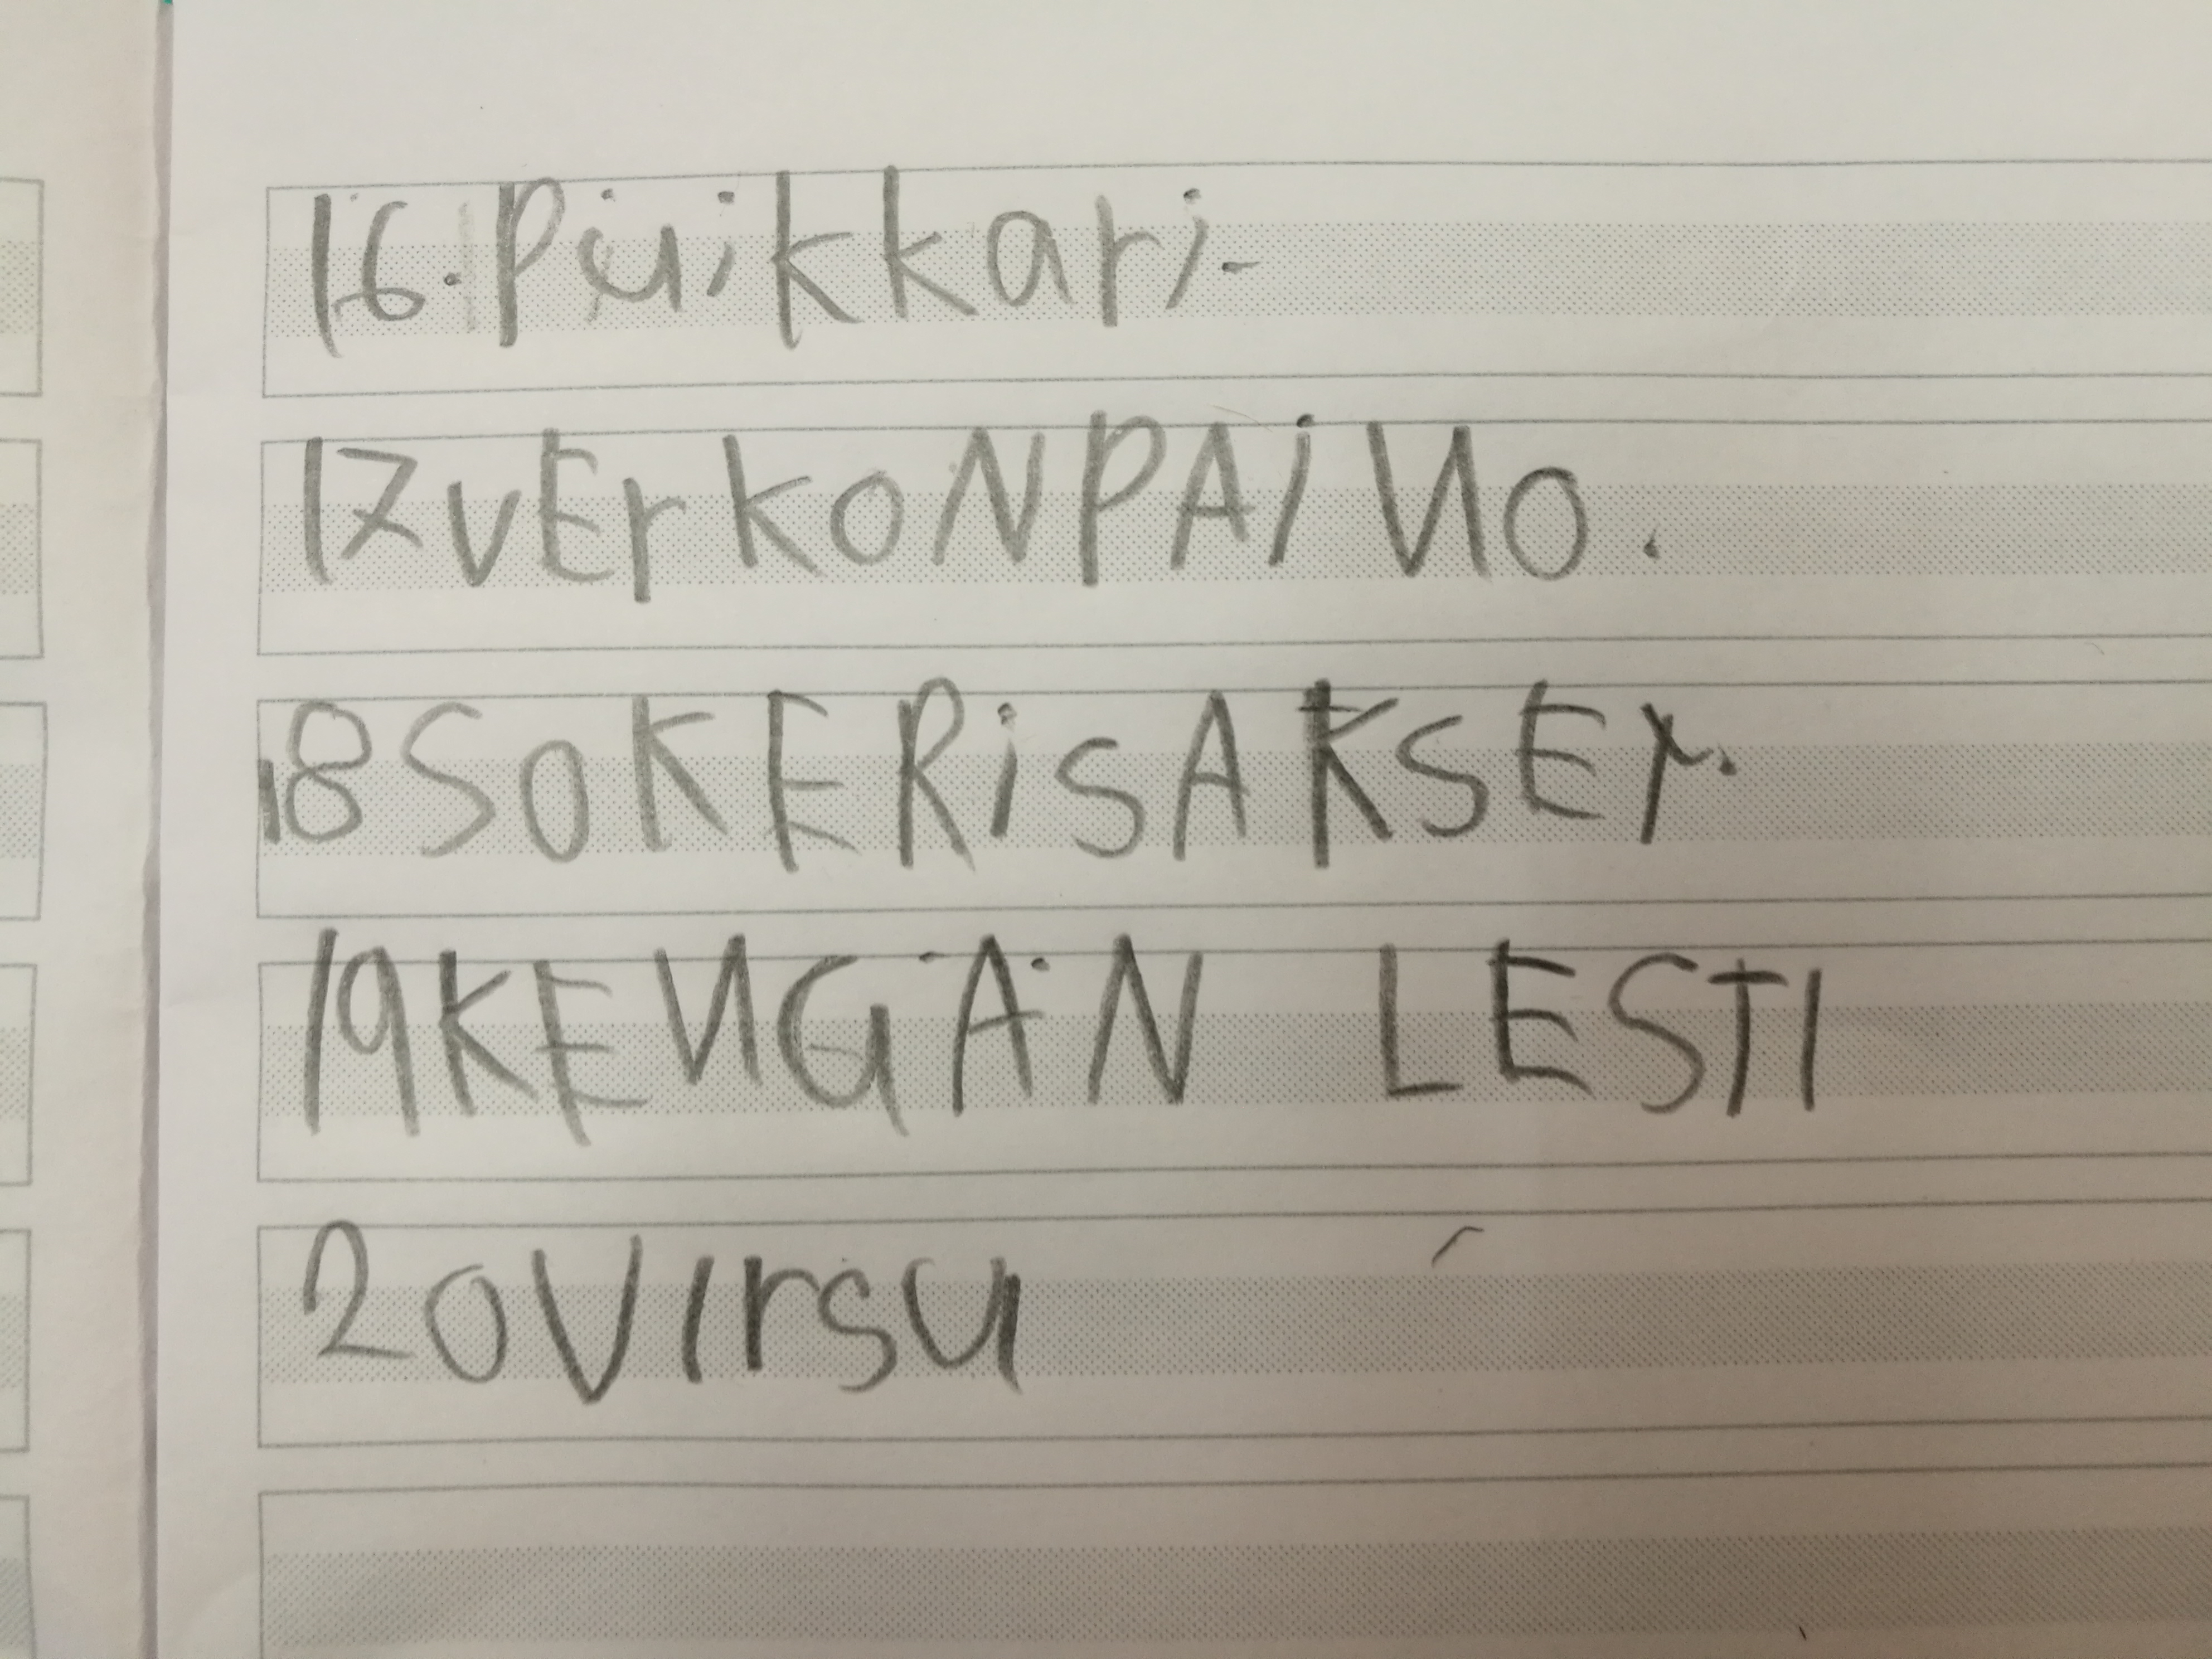 16. Puikkari.
17 vErKoNPAiNo.
18 SoKERiSAKSEr.
19 KENGÄN LESTI
20 Virsu